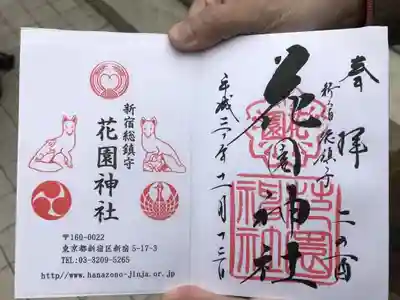 新宿総鎮守
花園神社
〒160-0022
東京都新宿区新宿5-17-3
TEL:03-3209-5265
http://www.hanazono-jinja.or.jp
奉拝 二の酉
新宿総鎮守
花園神社
平成三〇年十一月十三日
花園神社